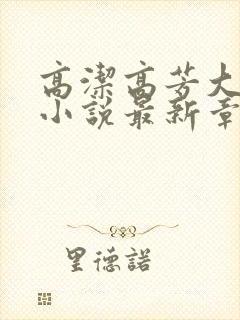 高潔高芳大
小說最新章
里德諾